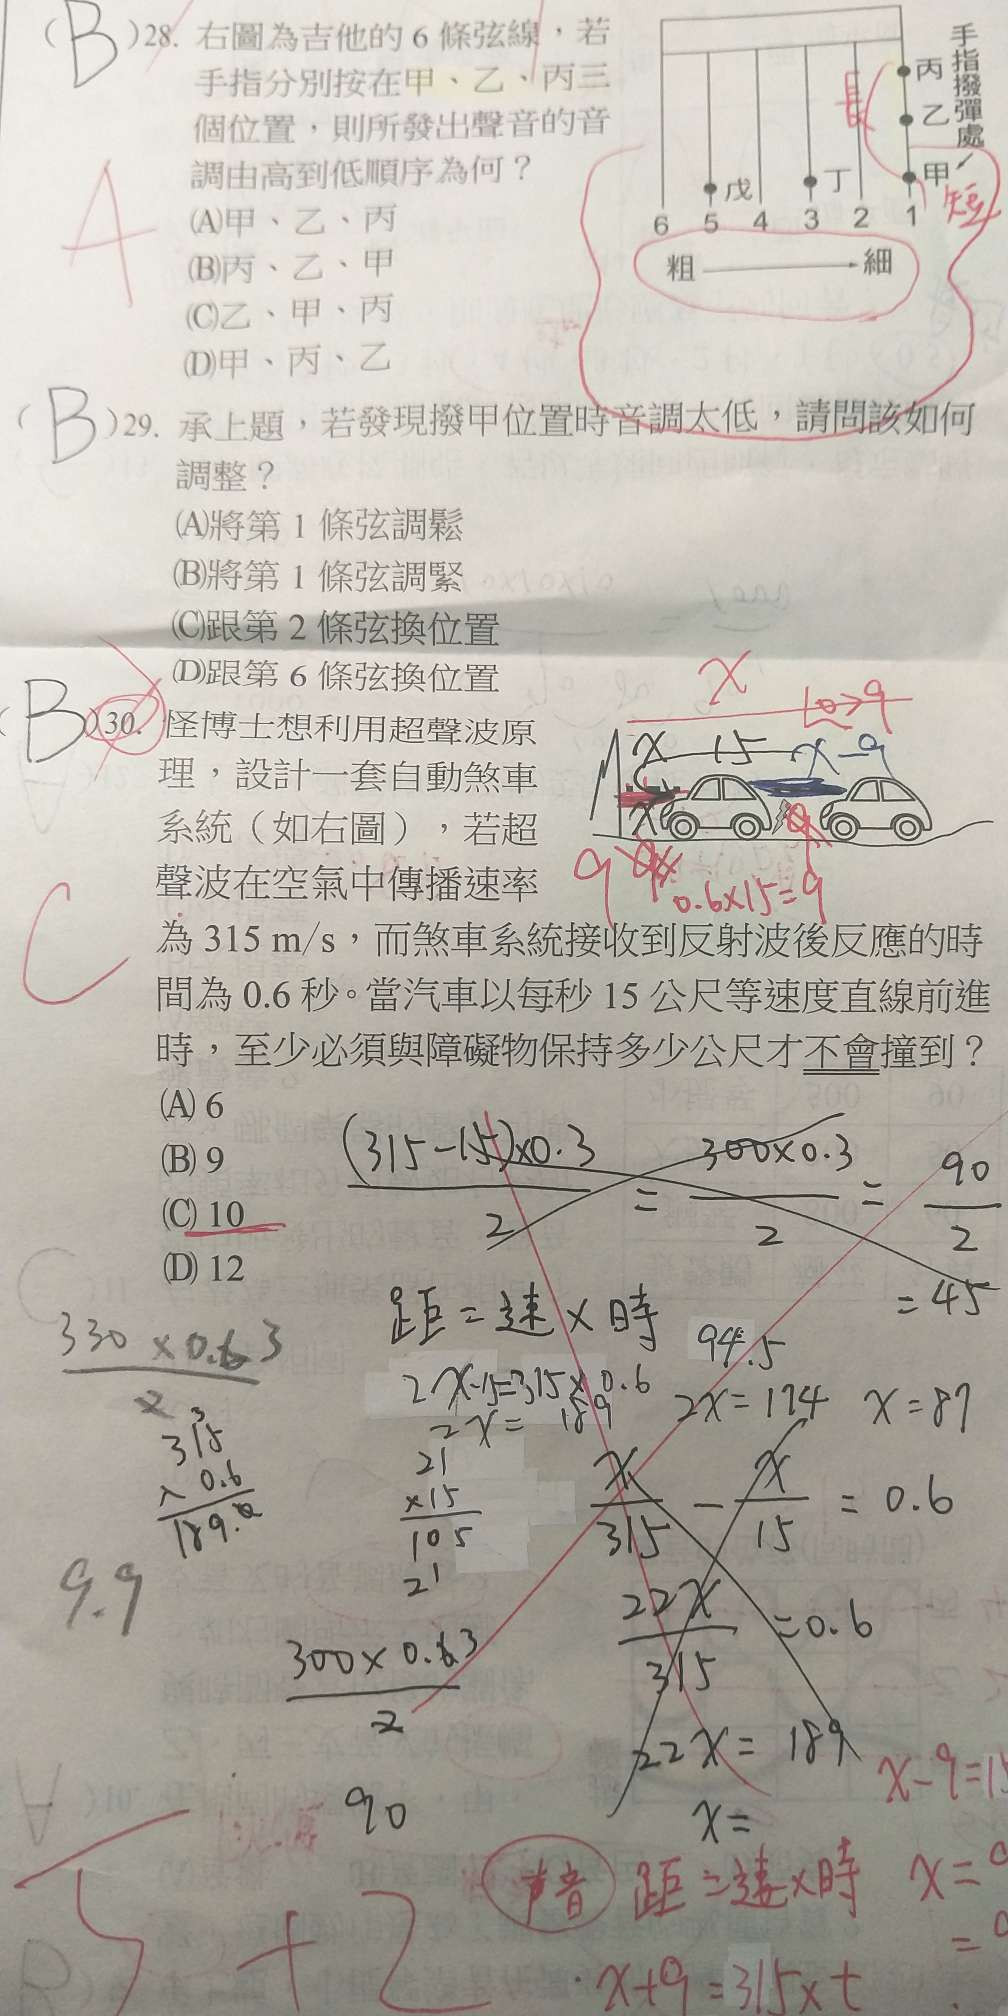 (B)28. 右圖為吉他的 6 條弦線，若
手指分別按在甲、乙、丙三
個位置，則所發出聲音的音
調由高到低順序為何？
(A)甲、乙、丙
(B)丙、乙、甲
(C)乙、甲、丙
(D)甲、丙、乙
A
手指撥彈處
丙
乙
甲
長
短
戊
丁
6 5 4 3 2 1
粗 細
(B)29. 承上題，若發現撥甲位置時音調太低，請問該如何
調整？
(A)將第 1 條弦調鬆
(B)將第 1 條弦調緊
(C)跟第 2 條弦換位置
(D)跟第 6 條弦換位置
(B)30. 怪博士想利用超聲波原
理，設計一套自動煞車
系統（如右圖），若超
聲波在空氣中傳播速率
為 315 m/s，而煞車系統接收到反射波後反應的時
間為 0.6 秒。當汽車以每秒 15 公尺等速度直線前進
時，至少必須與障礙物保持多少公尺才不會撞到？
(A) 6
(B) 9
(C) 10
(D) 12
C
x
x-15
x-9
9
0.6×15=9
(315-15)×0.3 / 2 = 300×0.3 / 2 = 90 / 2
= 45
距=速×時
94.5
2x-15=315×0.6
2x=174 x=87
2x= 189
315
×0.6
189.0
21
×15
105
21
x/315 - x/15 = 0.6
22x/315 =0.6
22x= 189
x=
9.9
300×0.3 / 2
90
x-9=
声音 距=速×時
x+9=315×t
5+2